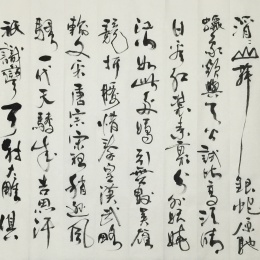 滔山舞銀蛇原馳
蠟象欲與天公試比高須晴
日看紅裝素裹分外妖嬈
江山如此多嬌引無數英雄
競折腰惜秦皇漢武略
輸文采唐宗宋祖稍遜風
騷一代天驕成吉思汗
祇識彎弓射大雕俱